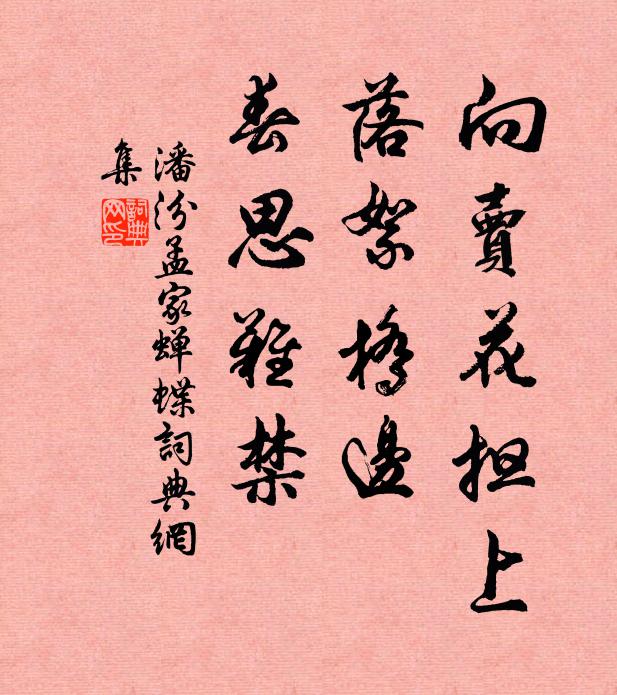 向賣花担上
落絮橋邊
春思難禁
潘汾孟家蝉蝶詞典網
集
詞典
网印